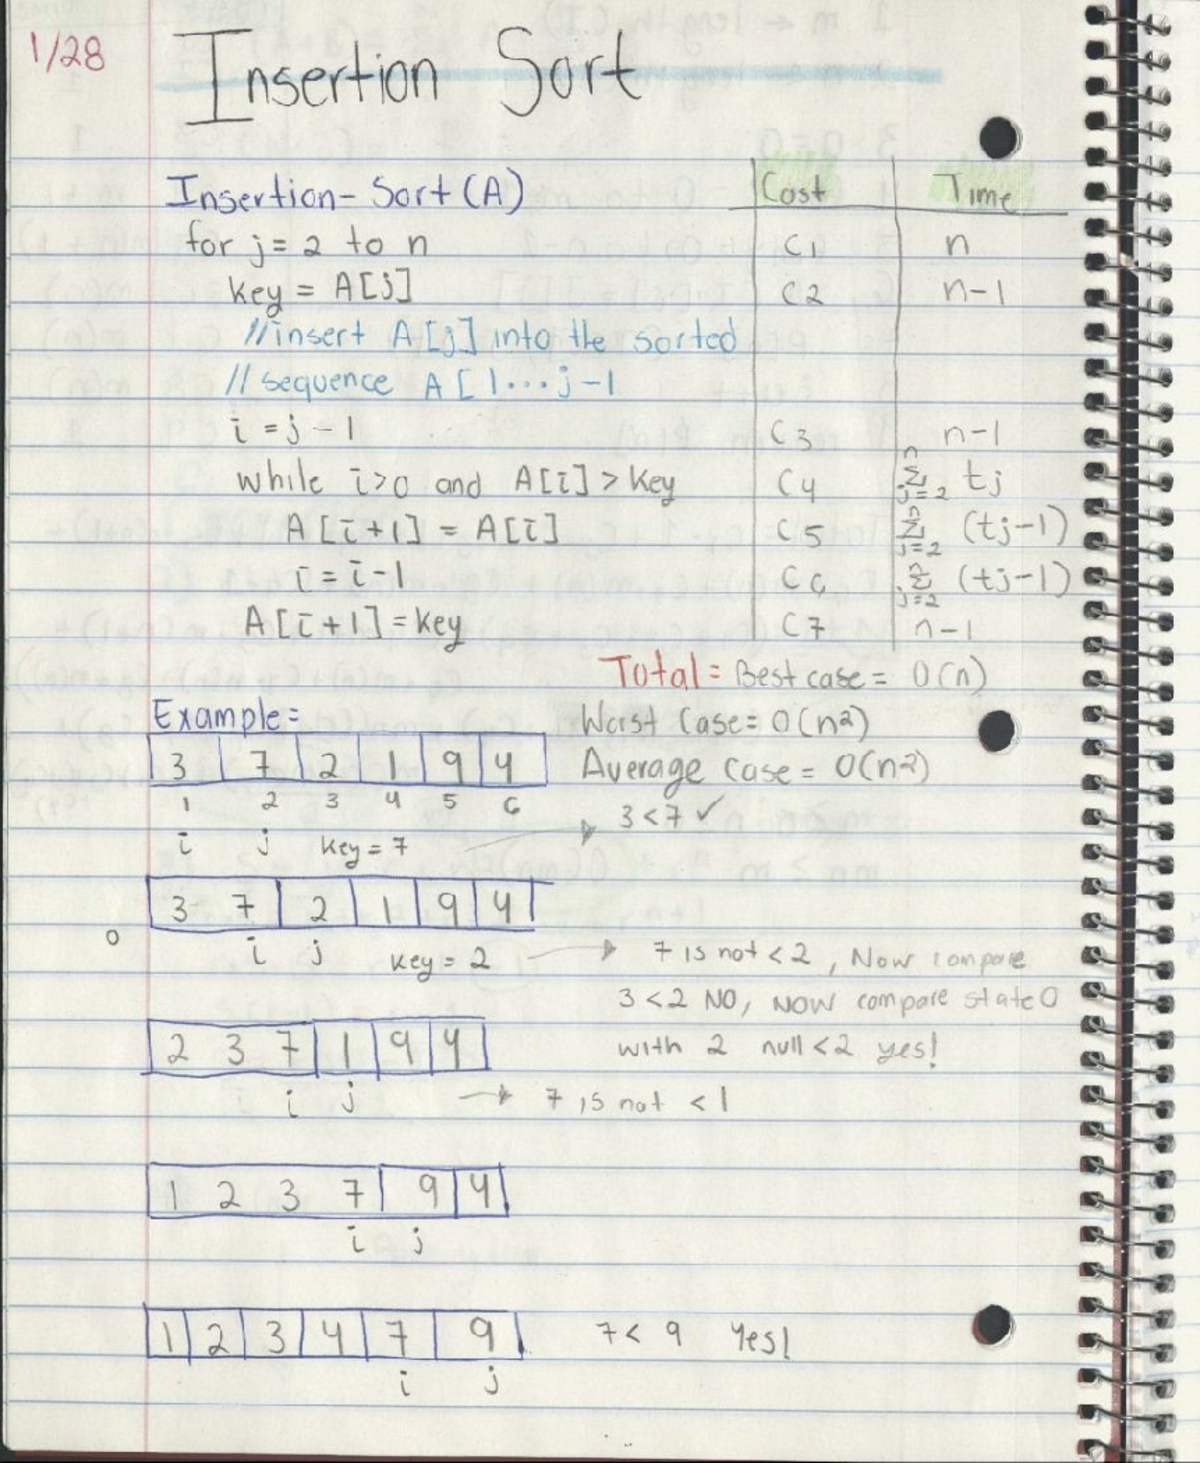 1/28
Insertion Sort
Insertion-Sort(A) Cost Time
for j = 2 to n C1 n
key = A[j] C2 n-1
//insert A[j] into the sorted
//sequence A[1...j-1
i = j-1 C3 n-1
while i>0 and A[i] > key C4 n Σ j=2 tj
A[i+1] = A[i] C5 n Σ j=2 (tj-1)
i = i-1 C6 n Σ j=2 (tj-1)
A[i+1] = key C7 n-1
Total = Best case = O(n)
Example= Worst Case = O(n²)
3 7 2 1 9 4 Average case = O(n²)
1 2 3 4 5 6
i j key = 7 → 3<7 ✓
3 7 2 1 9 4
0 i j key = 2 → 7 is not <2, Now compare
3<2 NO, NOW compare state 0
2 3 7 1 9 4 with 2 null<2 yes!
i j → 7 is not <1
1 2 3 7 9 4
i j
1 2 3 4 7 9 7 < 9 Yes!
i j